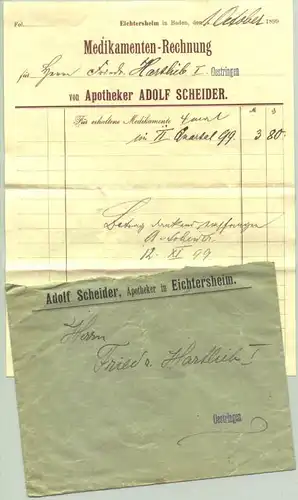 Fol.
Eichtersheim in Baden, den 1 October 1899
Medikamenten-Rechnung
für Herrn Friedr. Hartlieb I. Oestringen
von Apotheker ADOLF SCHEIDER.
M ₰
Für erhaltene Medikamente
im II Quartal 99. 3 80.
Betrag dankend empfangen
12. XI 99
Adolf Scheider, Apotheker in Eichtersheim.
Herrn
Friedr. Hartlieb I
Oestringen